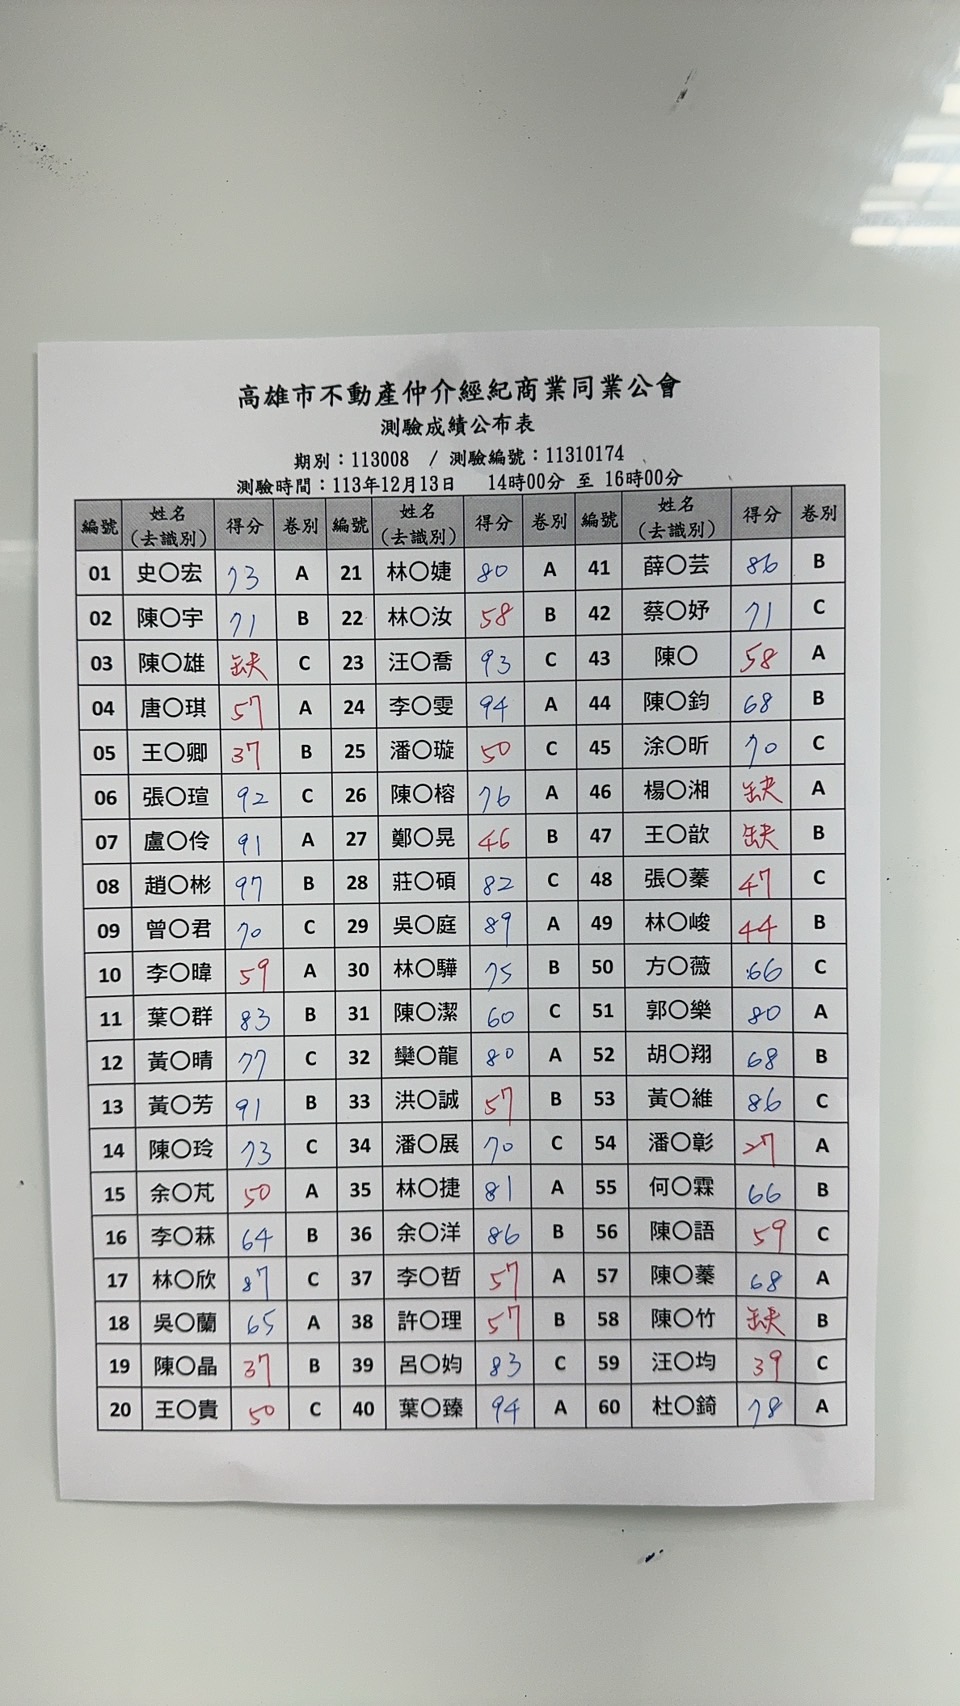 高雄市不動產仲介經紀商業同業公會
測驗成績公布表
期別：113008 / 測驗編號：11310174
測驗時間：113年12月13日 14時00分 至 16時00分
編號 姓名(去識別) 得分 卷別 編號 姓名(去識別) 得分 卷別 編號 姓名(去識別) 得分 卷別
01 史〇宏 73 A 21 林〇婕 80 A 41 薛〇芸 86 B
02 陳〇宇 71 B 22 林〇汝 58 B 42 蔡〇妤 71 C
03 陳〇雄 缺 C 23 汪〇喬 93 C 43 陳〇 58 A
04 唐〇琪 57 A 24 李〇雯 94 A 44 陳〇鈞 68 B
05 王〇卿 37 B 25 潘〇璇 50 C 45 涂〇昕 70 C
06 張〇瑄 92 C 26 陳〇榕 76 A 46 楊〇湘 缺 A
07 盧〇伶 91 A 27 鄭〇晃 46 B 47 王〇歆 缺 B
08 趙〇彬 97 B 28 莊〇碩 82 C 48 張〇蓁 47 C
09 曾〇君 70 C 29 吳〇庭 89 A 49 林〇峻 44 B
10 李〇暐 59 A 30 林〇驊 75 B 50 方〇薇 66 C
11 葉〇群 83 B 31 陳〇潔 60 C 51 郭〇樂 80 A
12 黃〇晴 77 C 32 欒〇龍 80 A 52 胡〇翔 68 B
13 黃〇芳 91 B 33 洪〇誠 57 B 53 黃〇維 86 C
14 陳〇玲 73 C 34 潘〇展 70 C 54 潘〇彰 27 A
15 余〇芃 50 A 35 林〇捷 81 A 55 何〇霖 66 B
16 李〇菻 64 B 36 余〇洋 86 B 56 陳〇語 59 C
17 林〇欣 87 C 37 李〇哲 57 A 57 陳〇蓁 68 A
18 吳〇蘭 65 A 38 許〇理 57 B 58 陳〇竹 缺 B
19 陳〇晶 37 B 39 呂〇妁 83 C 59 汪〇均 39 C
20 王〇貴 50 C 40 葉〇臻 94 A 60 杜〇錡 78 A